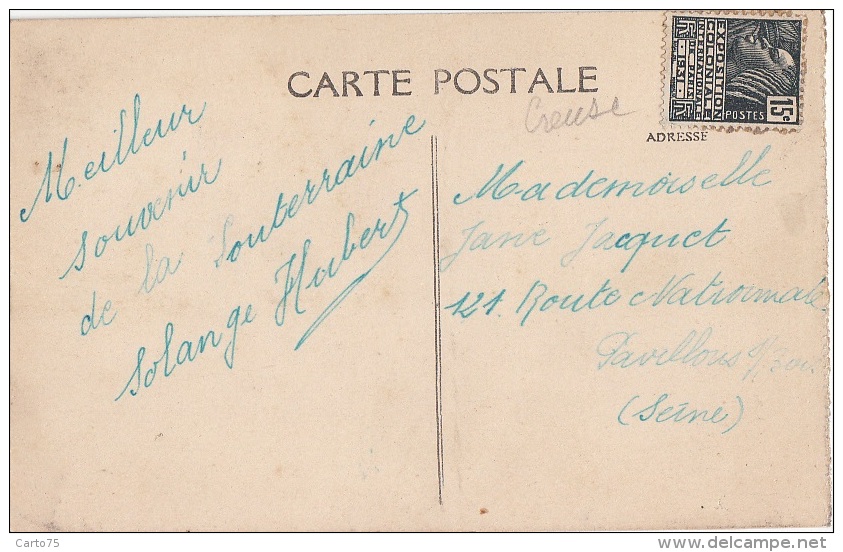 CARTE POSTALE
Creuse
ADRESSE
EXPOSITION
COLONIALE
INTERNATIONALE
PARIS 1931
POSTES
15c
RF
Meilleur
souvenir
de la Souterraine
Solange Hubert
Mademoiselle
Jane Jacquet
121. Route Nationale
Pavillons s/Bois
(Seine)
Carto75
www.delcampe.net